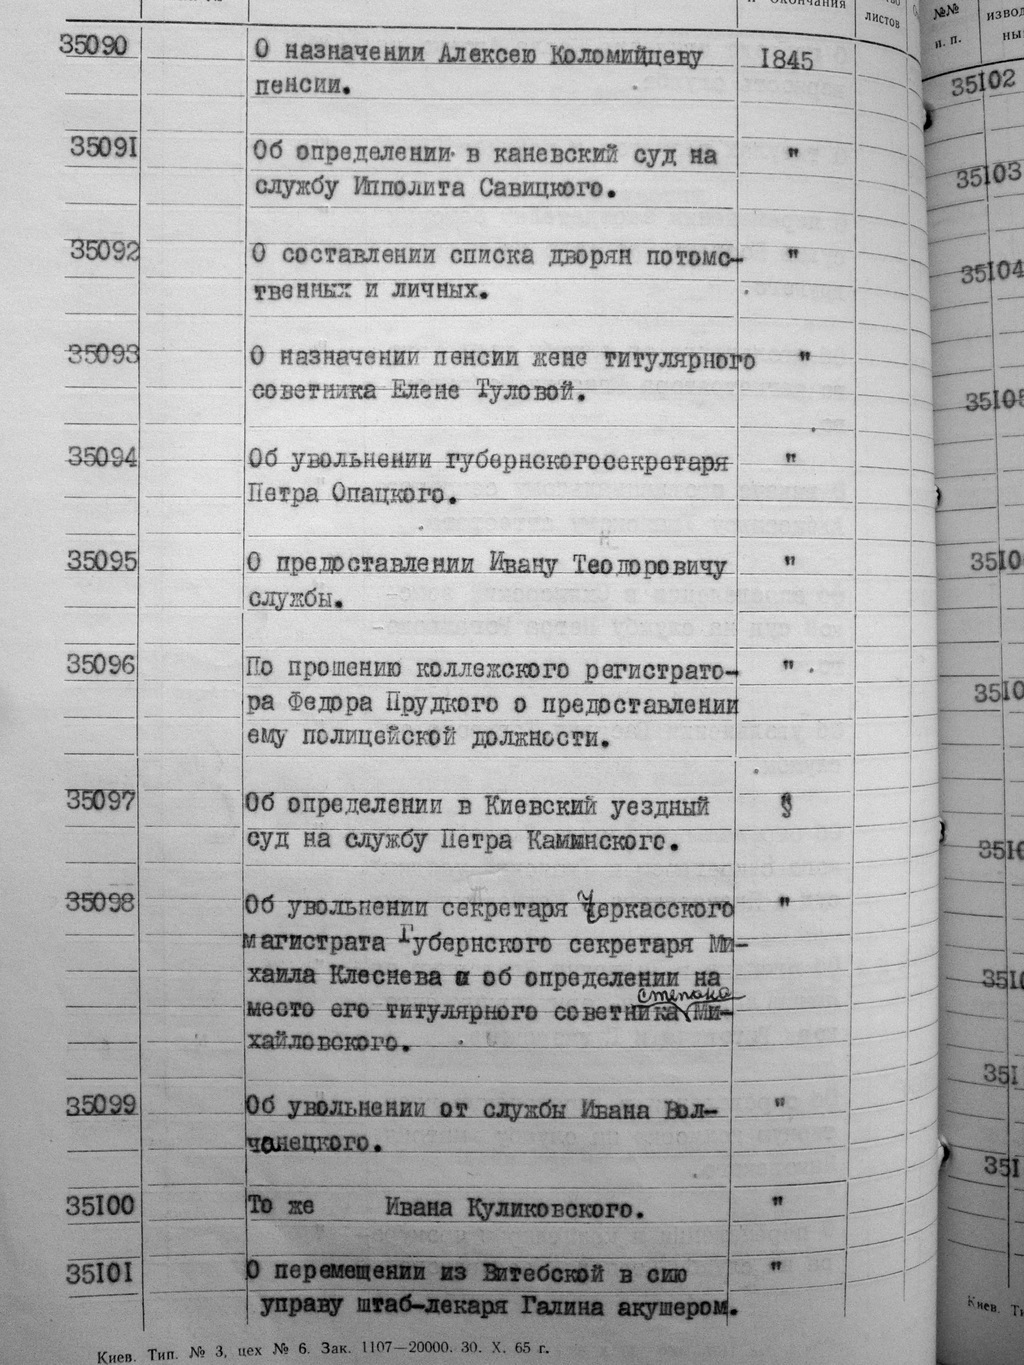 и окончания
листов
№№
п. п.
35090 О назначении Алексею Коломийцеву 1845
пенсии.
35091 Об определении в каневский суд на "
службу Ипполита Савицкого.
35092 О составлении списка дворян потомс- "
твенных и личных.
35093 О назначении пенсии жене титулярного "
советника Елене Туловой.
35094 Об увольнении губернскогосекретаря "
Петра Опацкого.
35095 О предоставлении Ивану Теодоровичу "
службы.
35096 По прошению коллежского регистрато- "
ра Федора Прудкого о предоставлении
ему полицейской должности.
35097 Об определении в Киевский уездный
суд на службу Петра Каминского.
35098 Об увольнении секретаря Черкасского "
магистрата Губернского секретаря Ми-
хаила Клеснева и об определении на
степана
место его титулярного советника Ми-
хайловского.
35099 Об увольнении от службы Ивана Вол- "
чанецкого.
35I00 То же Ивана Куликовского. "
35I0I О перемещении из Витебской в сию "
управу штаб-лекаря Галина акушером.
Киев. Тип. № 3, цех № 6. Зак. 1107—20000. 30. X. 65 г.
35I02
35I03
35I04
Киев.